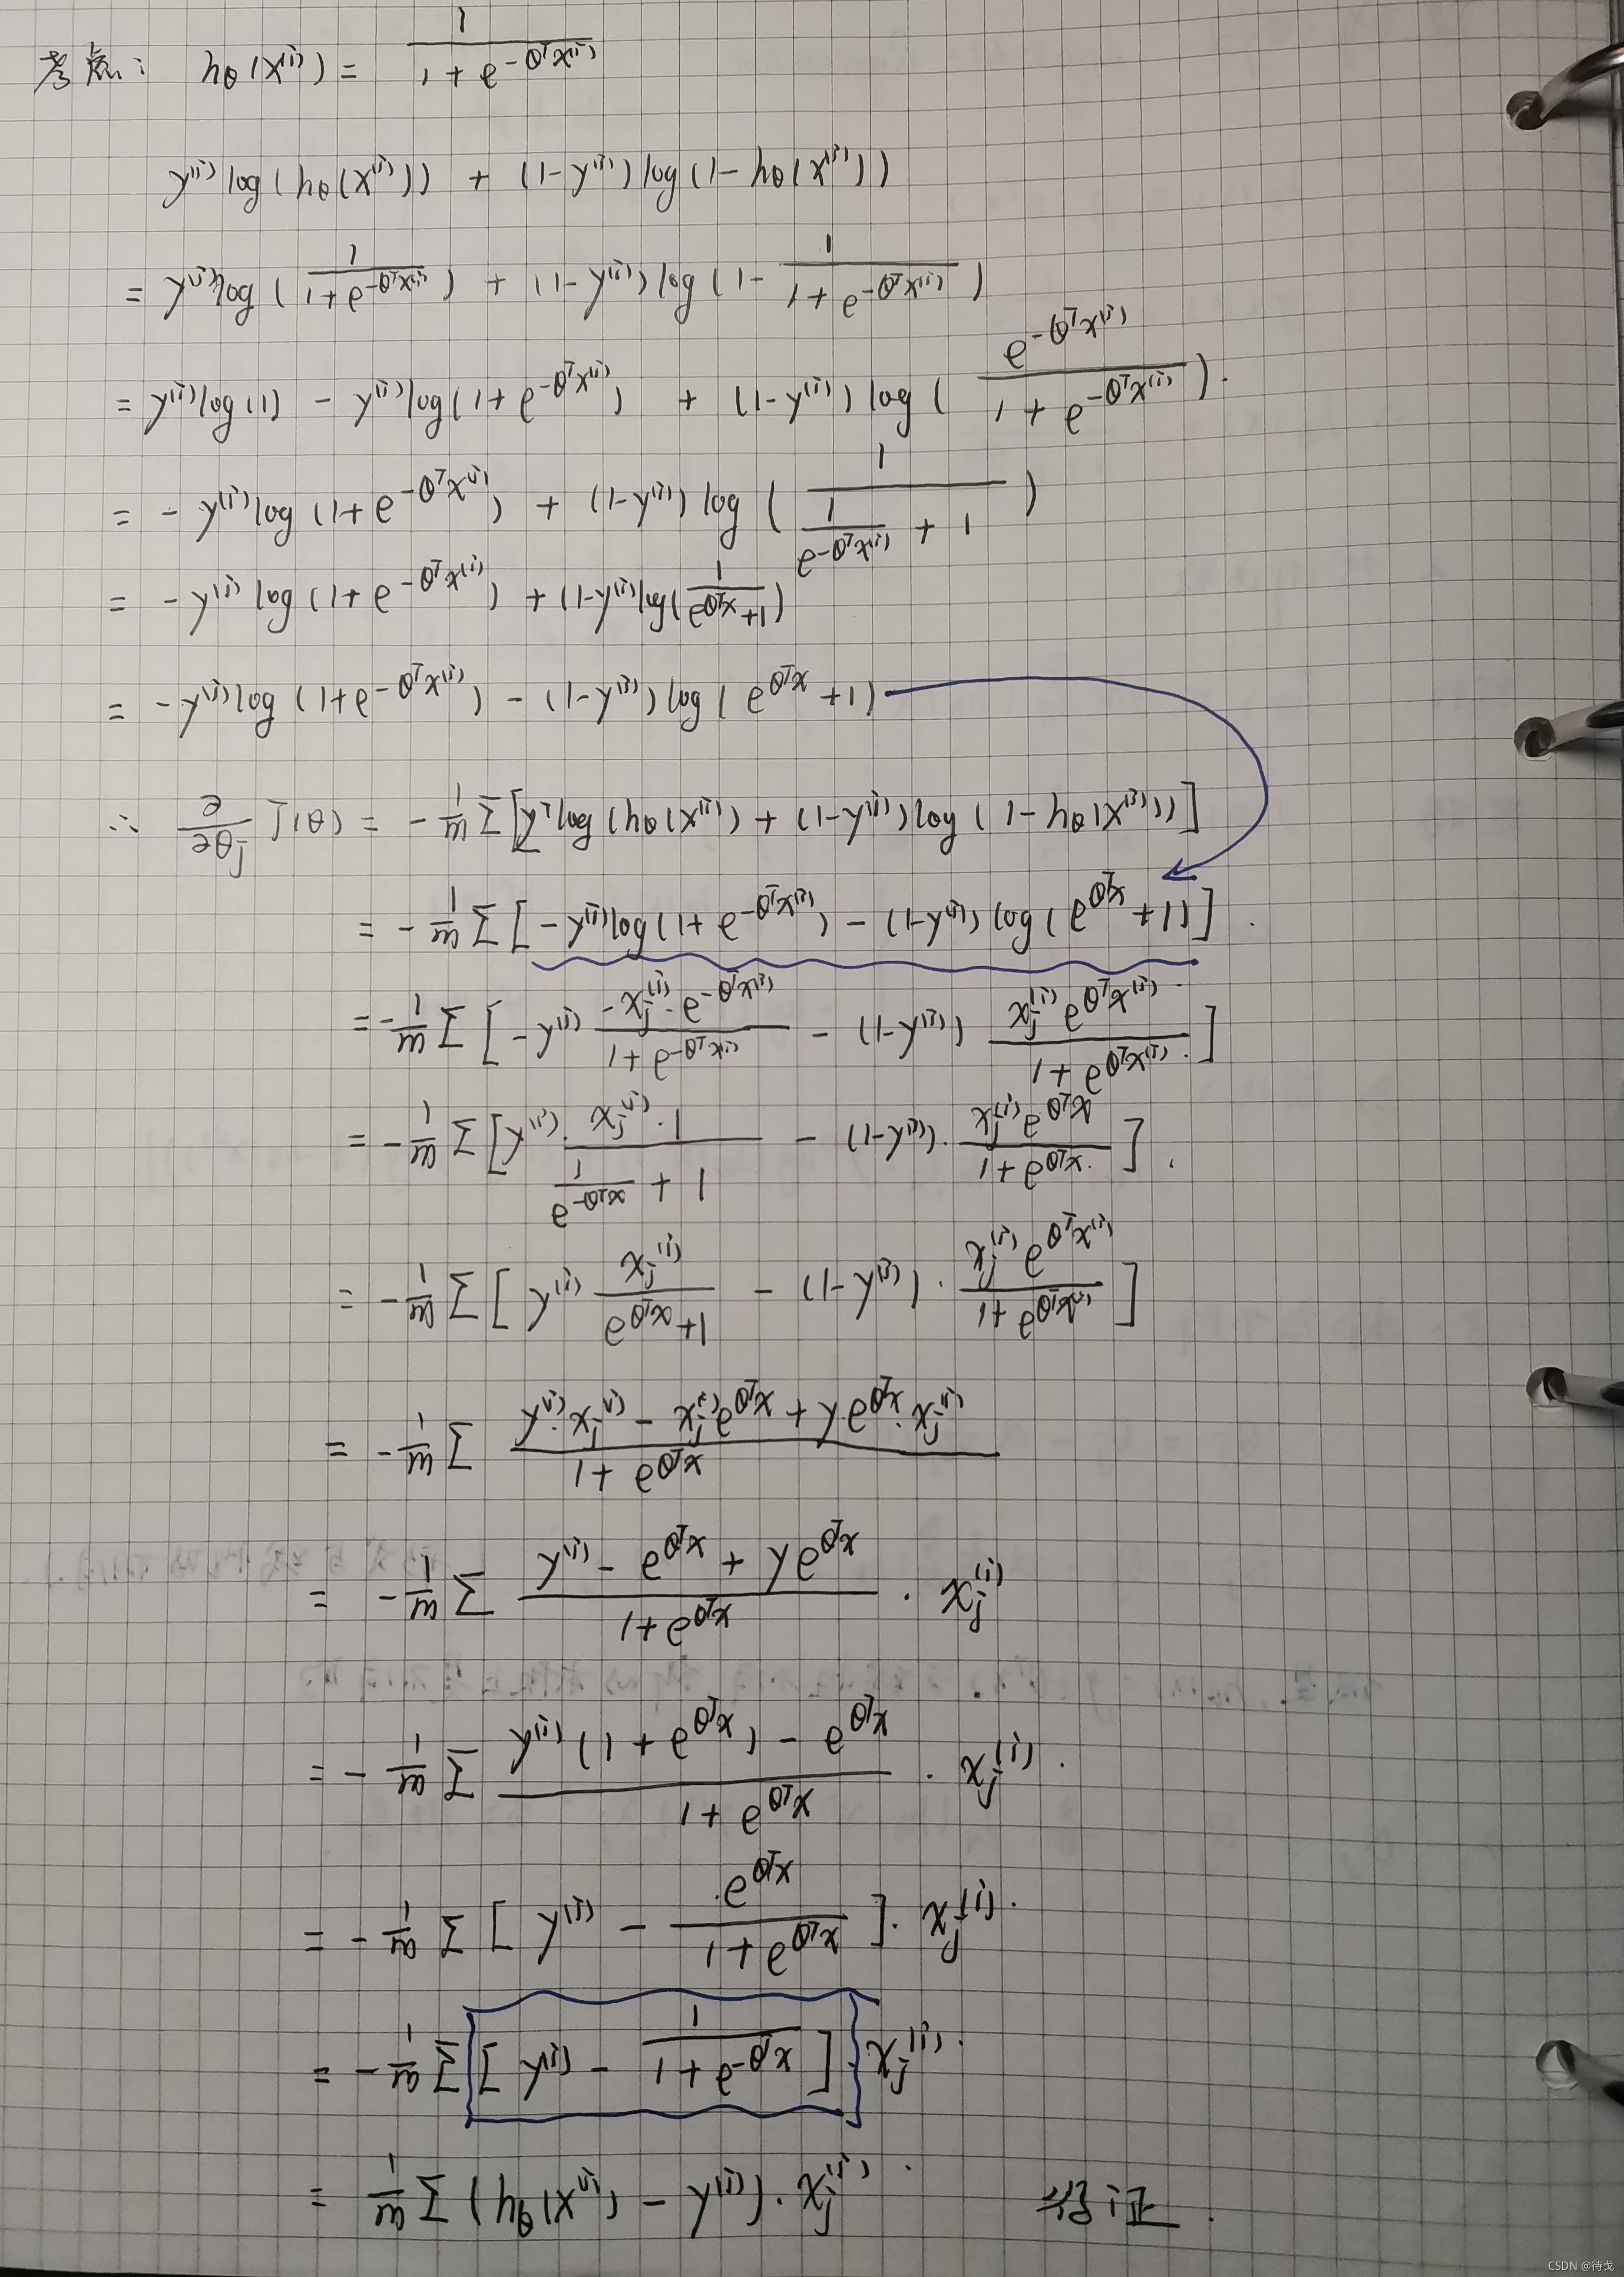 考虑: hθ(x⁽ⁱ⁾) = 1 / (1 + e^(-θᵀx⁽ⁱ⁾))
y⁽ⁱ⁾log(hθ(x⁽ⁱ⁾)) + (1-y⁽ⁱ⁾)log(1-hθ(x⁽ⁱ⁾))
= y⁽ⁱ⁾log( 1 / (1+e^(-θᵀx⁽ⁱ⁾)) ) + (1-y⁽ⁱ⁾)log(1- 1 / (1+e^(-θᵀx⁽ⁱ⁾)) )
= y⁽ⁱ⁾log(1) - y⁽ⁱ⁾log(1+e^(-θᵀx⁽ⁱ⁾)) + (1-y⁽ⁱ⁾)log( e^(-θᵀx⁽ⁱ⁾) / (1+e^(-θᵀx⁽ⁱ⁾)) ).
= -y⁽ⁱ⁾log(1+e^(-θᵀx⁽ⁱ⁾)) + (1-y⁽ⁱ⁾)log( 1 / (1/e^(-θᵀx⁽ⁱ⁾) + 1) )
= -y⁽ⁱ⁾log(1+e^(-θᵀx⁽ⁱ⁾)) + (1-y⁽ⁱ⁾log( 1 / (e^(θᵀx)+1) )
= -y⁽ⁱ⁾log(1+e^(-θᵀx⁽ⁱ⁾)) - (1-y⁽ⁱ⁾)log(e^(θᵀx)+1)
∴ ∂/∂θⱼ J(θ) = -1/m Σ[yⁱlog(hθ(x⁽ⁱ⁾) + (1-y⁽ⁱ⁾)log(1-hθ(x⁽ⁱ⁾))]
= -1/m Σ[-y⁽ⁱ⁾log(1+e^(-θᵀx⁽ⁱ⁾)) - (1-y⁽ⁱ⁾)log(e^(θᵀx)+1)].
= -1/m Σ[-y⁽ⁱ⁾ (-xⱼ⁽ⁱ⁾·e^(-θᵀx⁽ⁱ⁾)) / (1+e^(-θᵀx⁽ⁱ⁾)) - (1-y⁽ⁱ⁾) xⱼ⁽ⁱ⁾e^(θᵀx⁽ⁱ⁾) / (1+e^(θᵀx⁽ⁱ⁾))]
= -1/m Σ[y⁽ⁱ⁾· xⱼ⁽ⁱ⁾·1 / (1/e^(-θᵀx) + 1) - (1-y⁽ⁱ⁾)· xⱼ⁽ⁱ⁾e^(θᵀx) / (1+e^(θᵀx))].
= -1/m Σ[y⁽ⁱ⁾ xⱼ⁽ⁱ⁾ / (e^(θᵀx)+1) - (1-y⁽ⁱ⁾)· xⱼ⁽ⁱ⁾e^(θᵀx⁽ⁱ⁾) / (1+e^(θᵀx⁽ⁱ⁾))]
= -1/m Σ (y⁽ⁱ⁾·xⱼ⁽ⁱ⁾ - xⱼ⁽ⁱ⁾e^(θᵀx) + y·e^(θᵀx)·xⱼ⁽ⁱ⁾) / (1+e^(θᵀx))
= -1/m Σ (y⁽ⁱ⁾ - e^(θᵀx) + ye^(θᵀx)) / (1+e^(θᵀx)) · xⱼ⁽ⁱ⁾
= -1/m Σ (y⁽ⁱ⁾(1+e^(θᵀx)) - e^(θᵀx)) / (1+e^(θᵀx)) · xⱼ⁽ⁱ⁾.
= -1/m Σ[y⁽ⁱ⁾ - e^(θᵀx) / (1+e^(θᵀx))]· xⱼ⁽ⁱ⁾.
= -1/m Σ[y⁽ⁱ⁾ - 1 / (1+e^(-θᵀx))] xⱼ⁽ⁱ⁾.
= 1/m Σ(hθ(x⁽ⁱ⁾) - y⁽ⁱ⁾)·xⱼ⁽ⁱ⁾. 得证.
CSDN @待戈